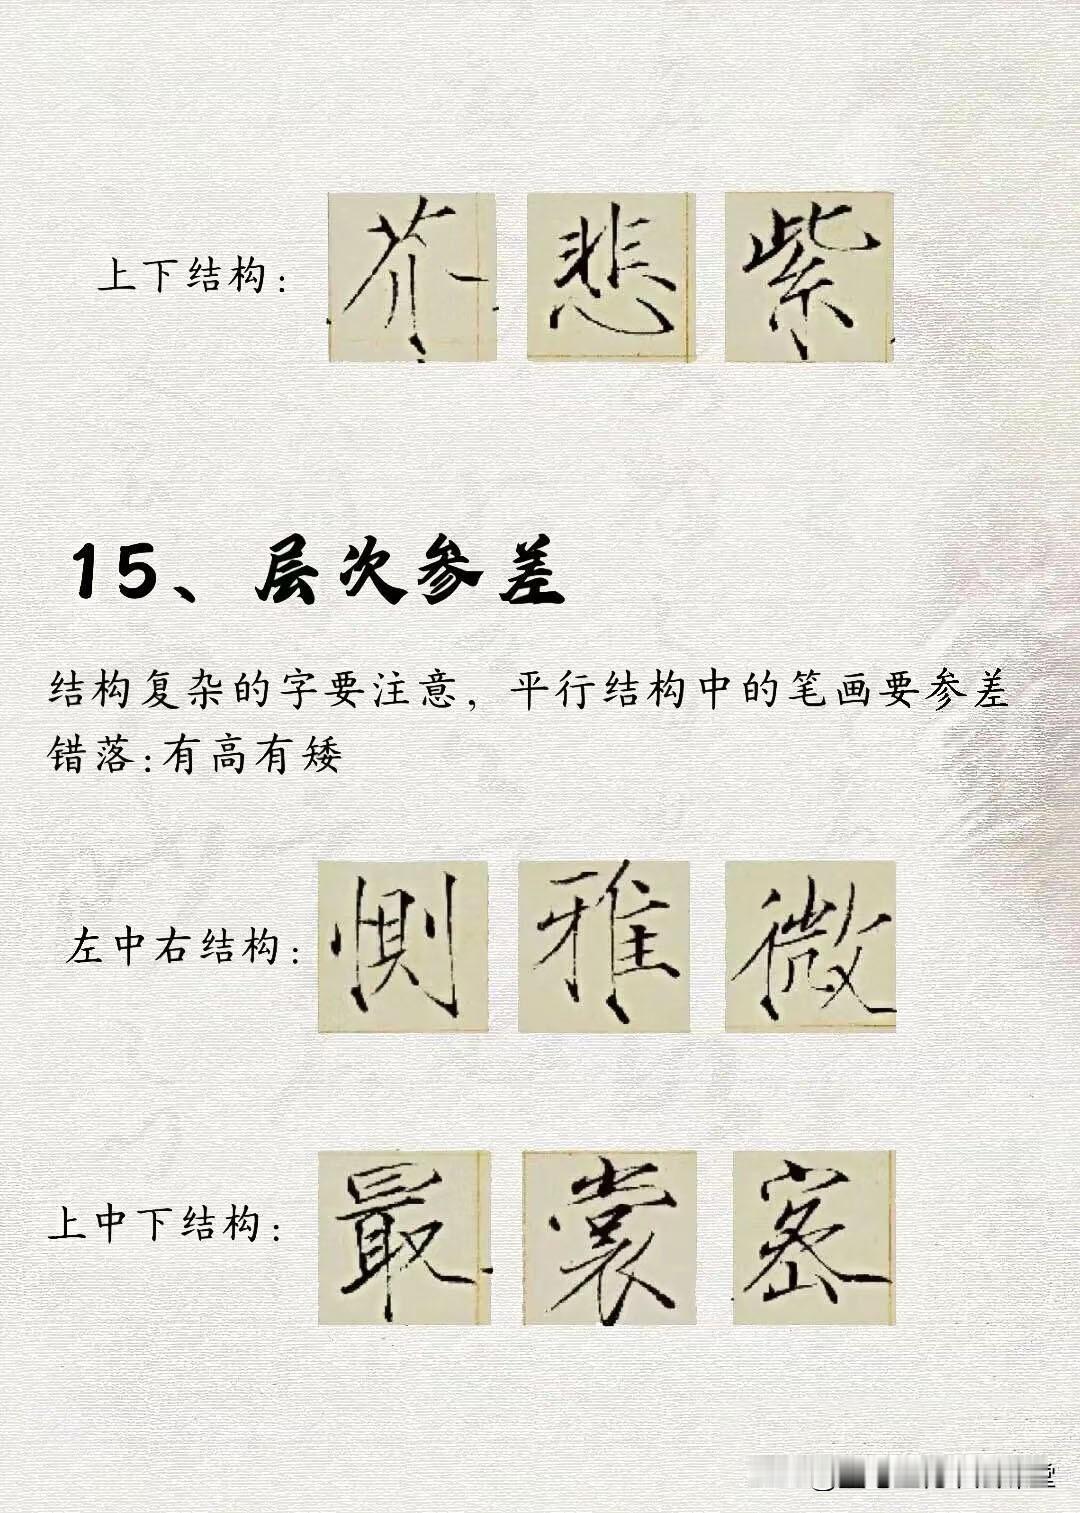 上下结构：芥 悲 紫
15、层次参差
结构复杂的字要注意，平行结构中的笔画要参差
错落:有高有矮
左中右结构：恻 雅 微
上中下结构：最 裳 密